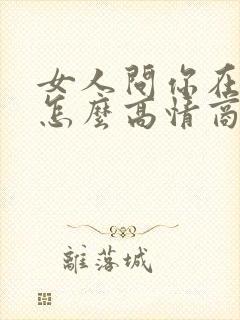 女人問你在
怎麼高情商
離落城